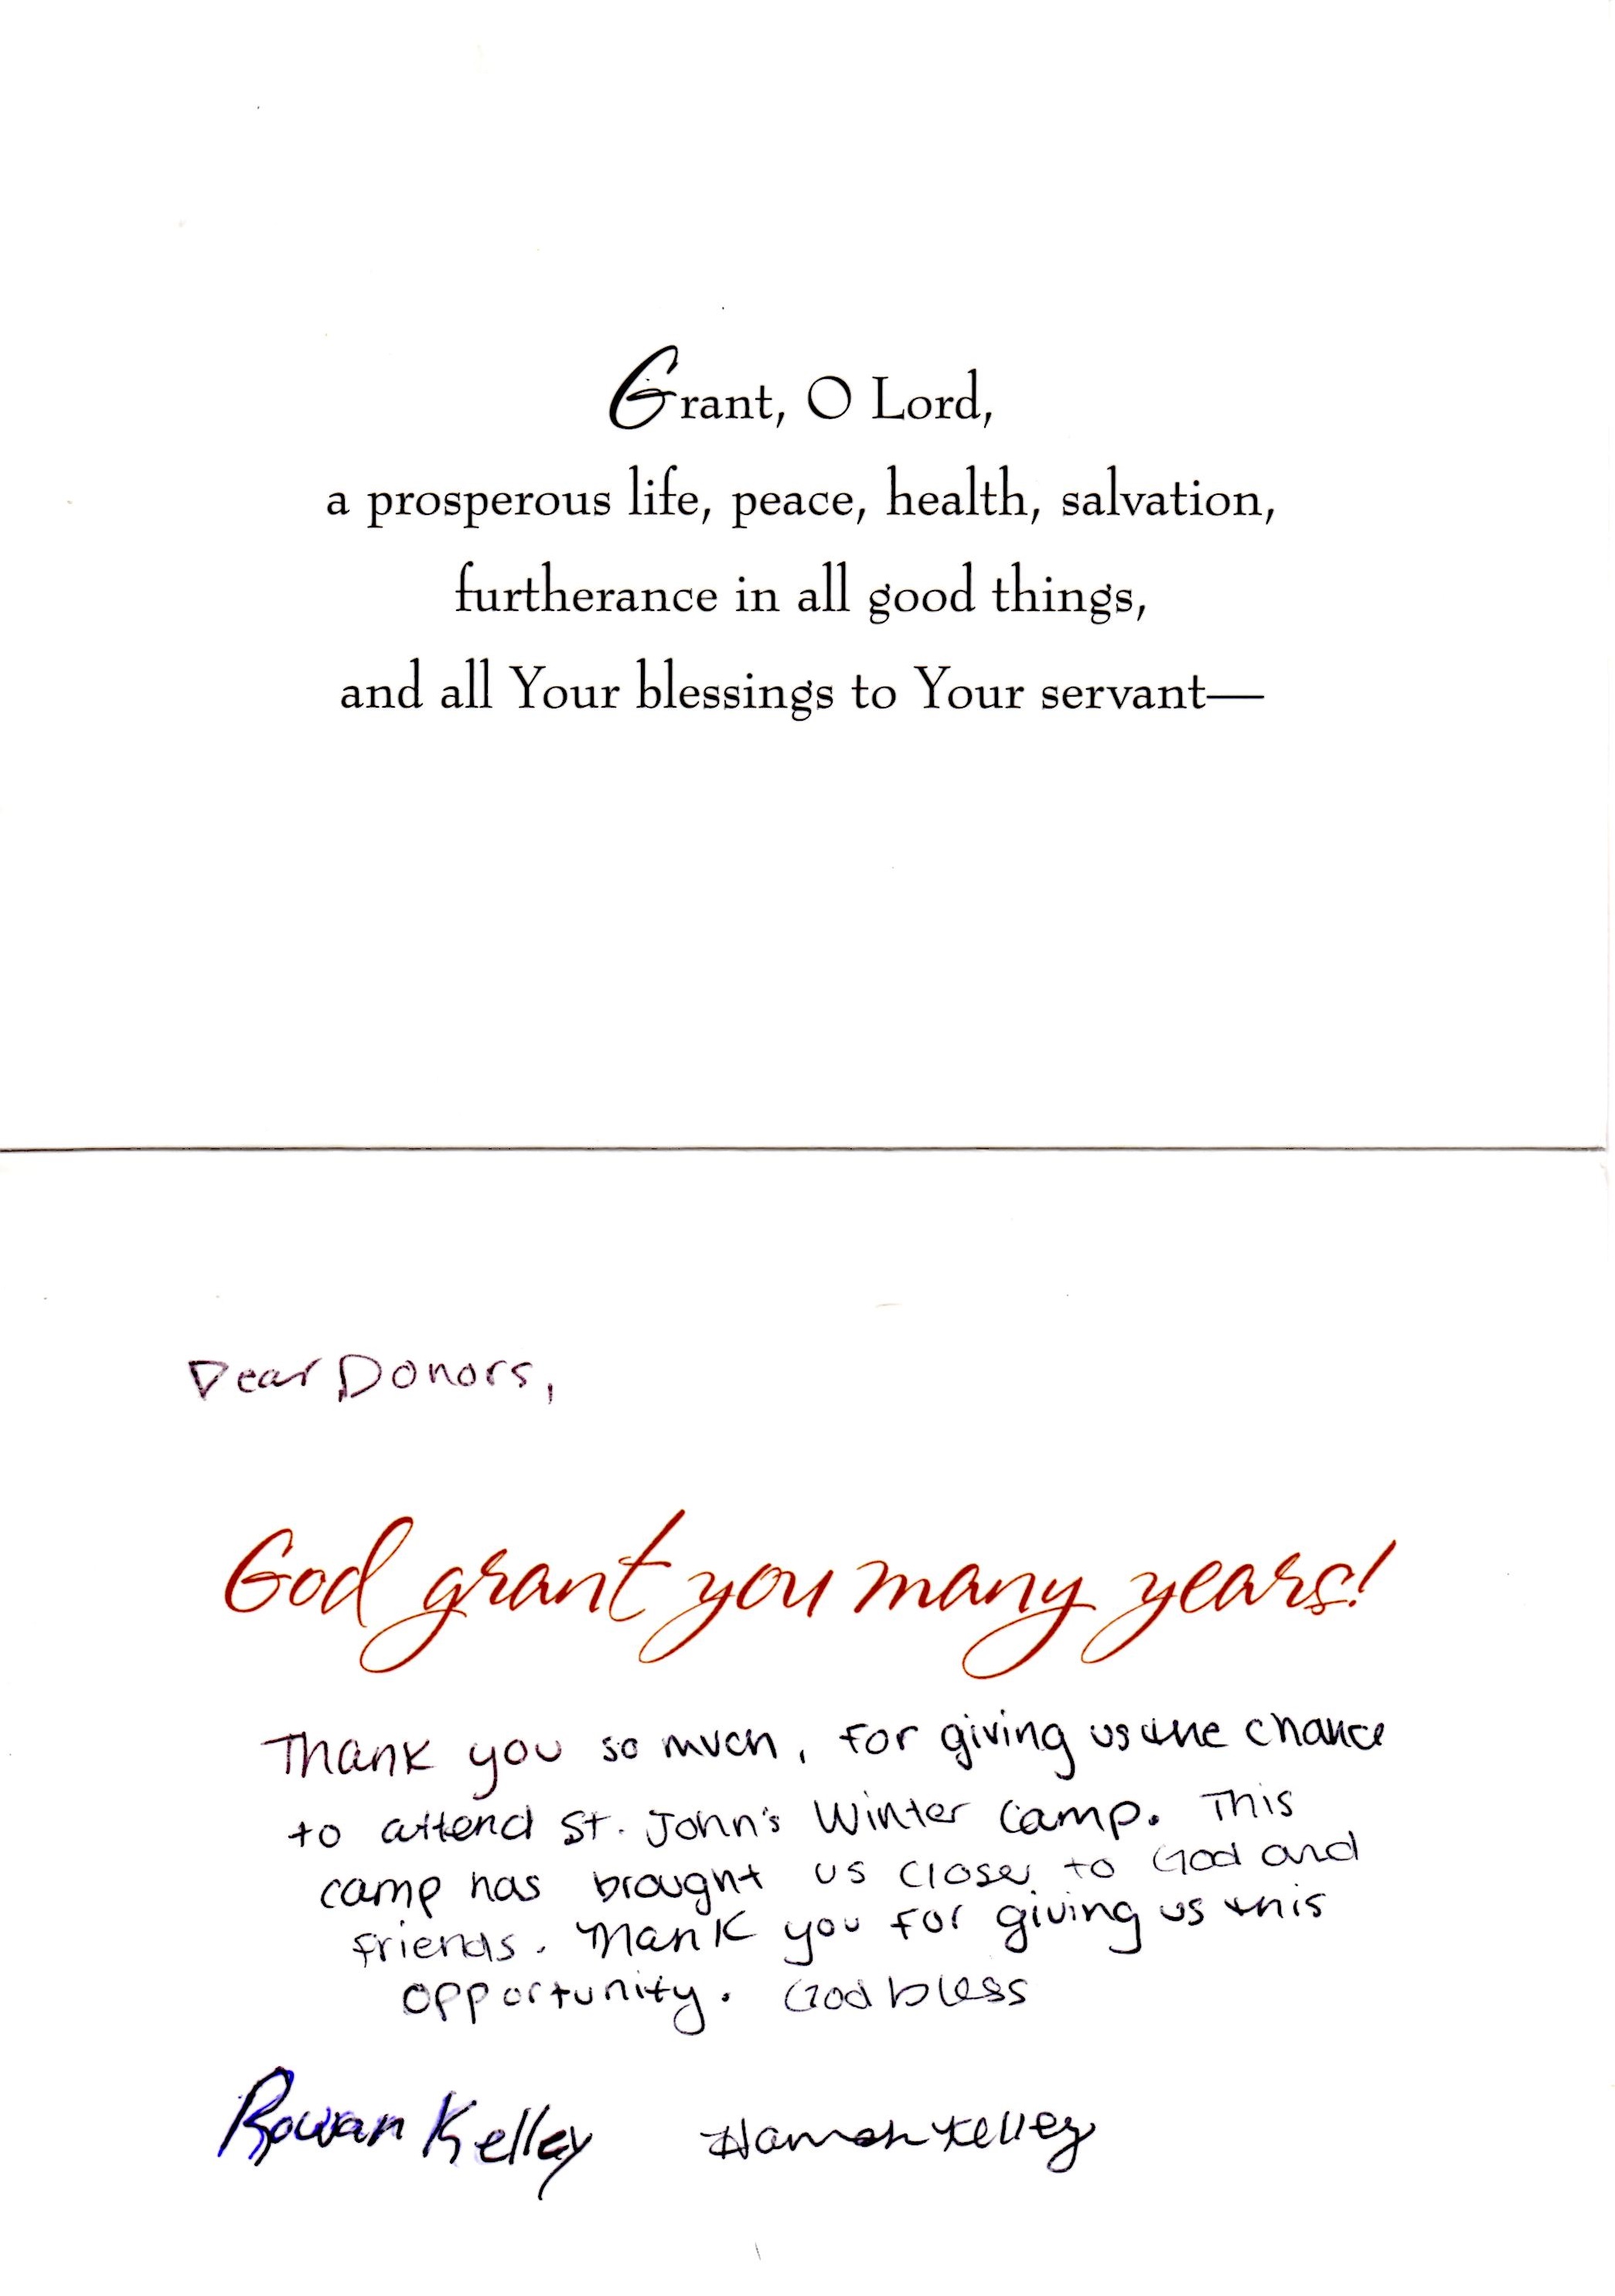 Grant, O Lord,
a prosperous life, peace, health, salvation,
furtherance in all good things,
and all Your blessings to Your servant—
Dear Donors,
God grant you many years!
Thank you so much, for giving us the chance
to attend St. John's Winter Camp. This
camp has brought us closer to God and
friends. Thank you for giving us this
opportunity. God bless
Rowan Kelley Hannah Kelley